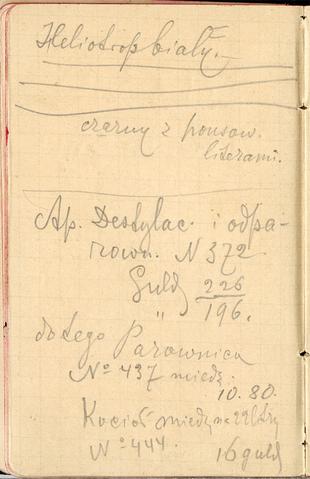 Heliotrop biały.
czarny z ponsow.
literami.
Ap. Destylac. i odpa-
rown. N 372
Guld 226
" 196.
do tego Parownica
No 437 miedz.
10.80.
Kocioł miedz na 22 litry
No 444.
16 guld